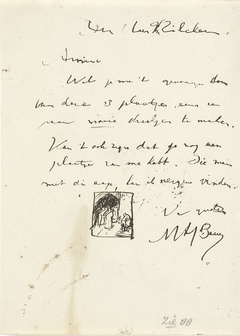 Den Heer Zilcken
Amice
Wil je me 't genoegen doen
van deze 3 plaatjes een
paar mooie drukjes te maken.
Kan 't ook zijn dat je nog een
plaatje van me hebt. Die man
met die aap, kan ik nergens vinden.
M A J Bauer